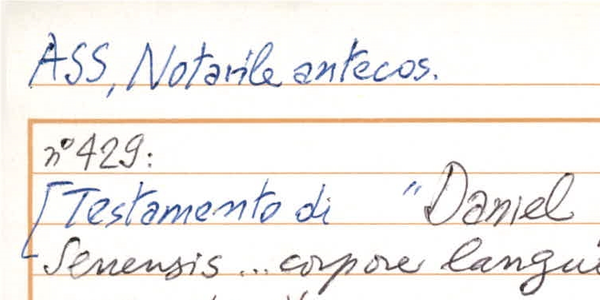 ASS, Notarile antecos.
n° 429:
[Testamento di "Daniel
Senensis ... corpore langu